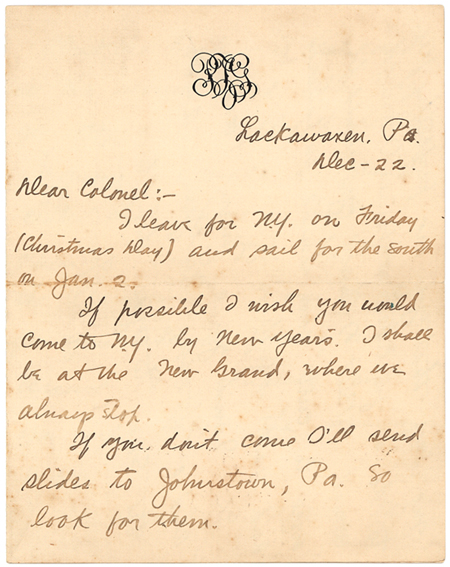 Lackawaxen, Pa.
Dec-22.
Dear Colonel:-
I leave for N.Y. on Friday
(Christmas Day) and sail for the south
on Jan. 2.
If possible I wish you would
come to N.Y. by New Years. I shall
be at the New Grand, where we
always stop.
If you don't come I'll send
slides to Johnstown, Pa. So
look for them.